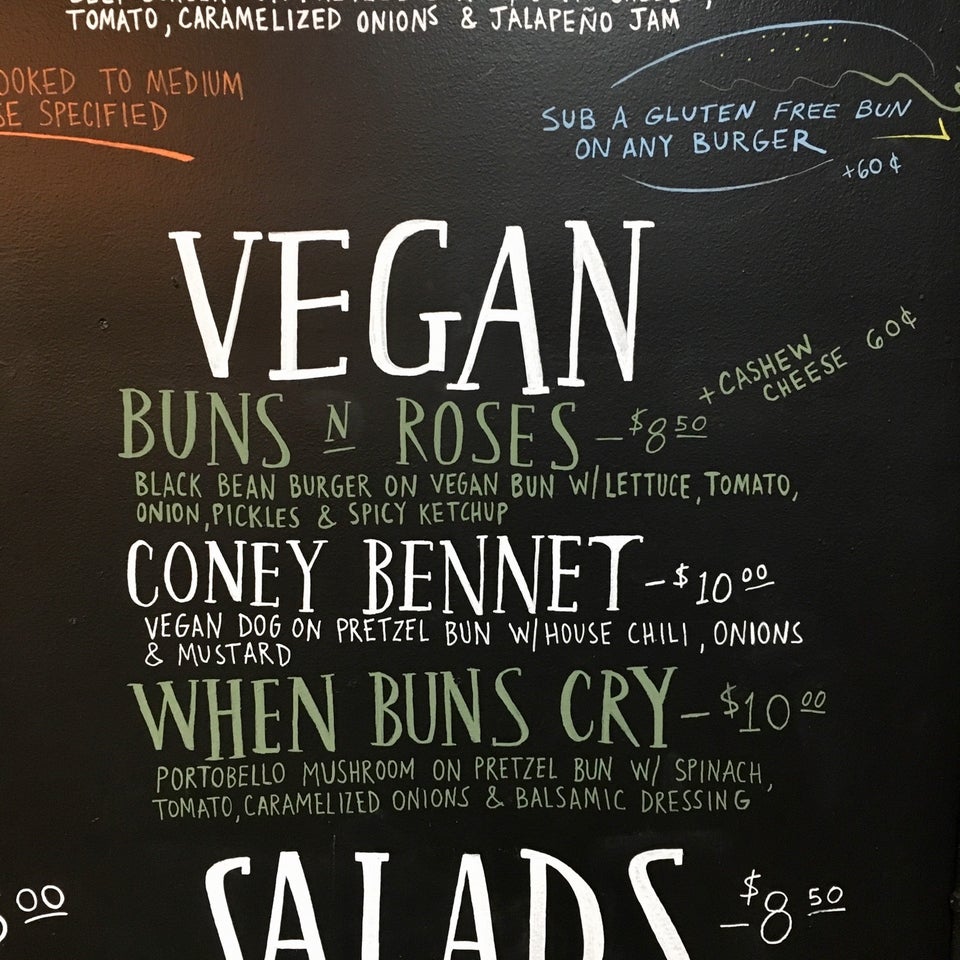 TOMATO, CARAMELIZED ONIONS & JALAPEÑO JAM
TO MEDIUM
SPECIFIED
SUB A GLUTEN FREE BUN
ON ANY BURGER
+60¢
VEGAN
+ CASHEW
CHEESE 60¢
BUNS N ROSES - $8 50
BLACK BEAN BURGER ON VEGAN BUN W/ LETTUCE, TOMATO,
ONION, PICKLES & SPICY KETCHUP
CONEY BENNET - $10 00
VEGAN DOG ON PRETZEL BUN W/ HOUSE CHILI, ONIONS
& MUSTARD
WHEN BUNS CRY - $10 00
PORTOBELLO MUSHROOM ON PRETZEL BUN W/ SPINACH,
TOMATO, CARAMELIZED ONIONS & BALSAMIC DRESSING
00
SALADS - $8 50